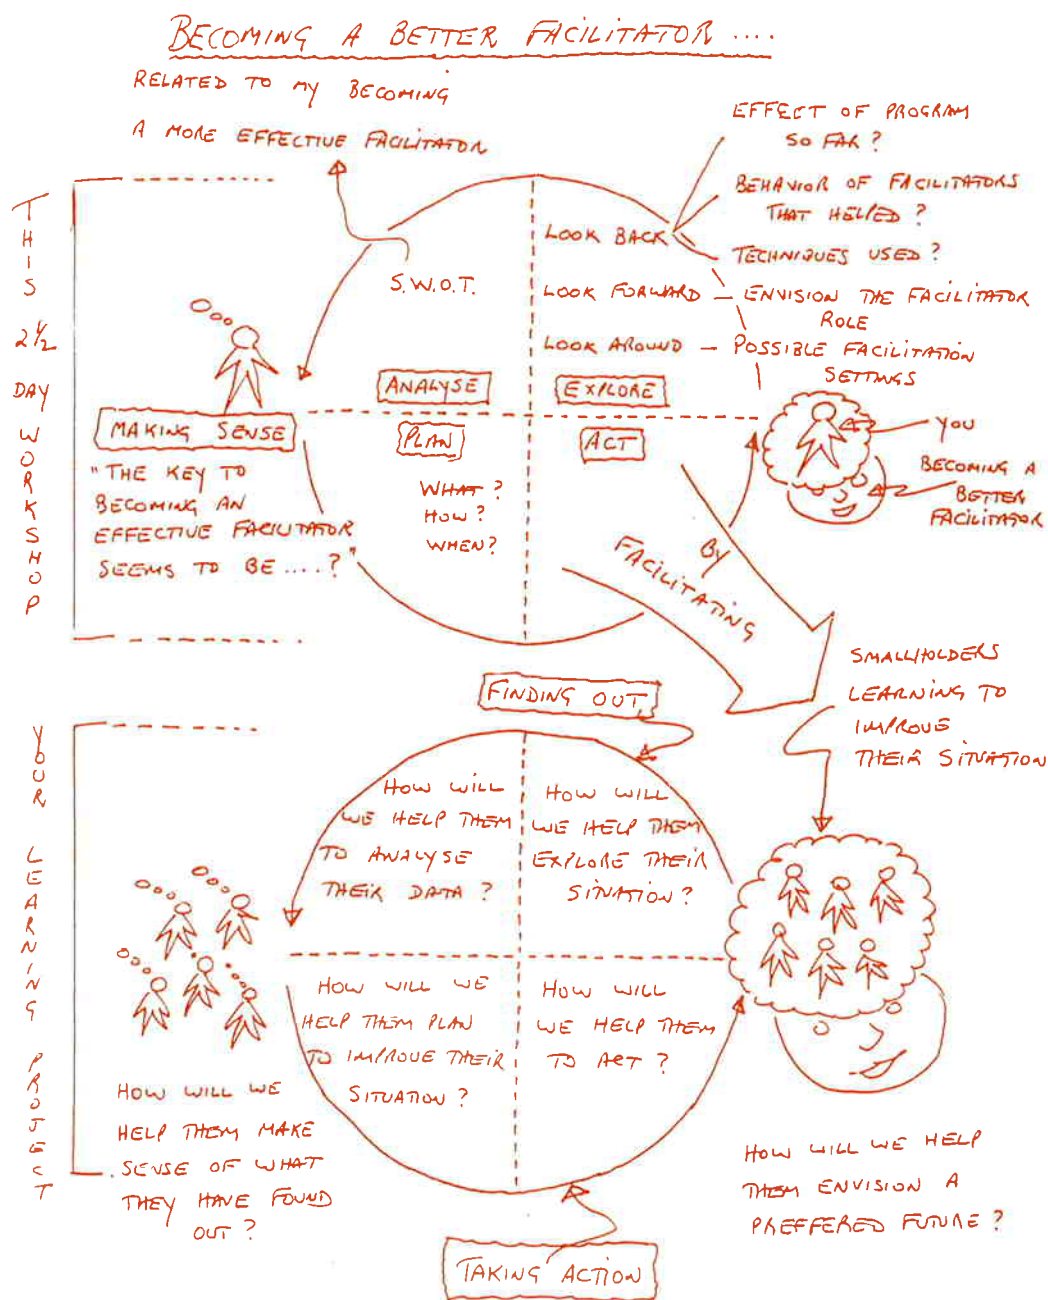 BECOMING A BETTER FACILITATOR ....
RELATED TO MY BECOMING
A MORE EFFECTIVE FACILITATOR
EFFECT OF PROGRAM
SO FAR?
BEHAVIOR OF FACILITATORS
THAT HELPED?
TECHNIQUES USED?
LOOK BACK
LOOK FORWARD — ENVISION THE FACILITATOR
ROLE
LOOK AROUND — POSSIBLE FACILITATION
SETTINGS
S.W.O.T.
THIS 2½ DAY WORKSHOP
ANALYSE
EXPLORE
MAKING SENSE
PLAN
ACT
"THE KEY TO
BECOMING AN
EFFECTIVE FACILITATOR
SEEMS TO BE ....?"
WHAT?
HOW?
WHEN?
YOU
BECOMING A
BETTER
FACILITATOR
BY
FACILITATING
SMALLHOLDERS
LEARNING TO
IMPROVE
THEIR SITUATION
FINDING OUT
YOUR LEARNING PROJECT
HOW WILL
WE HELP THEM
TO ANALYSE
THEIR DATA?
HOW WILL
WE HELP THEM
EXPLORE THEIR
SITUATION?
HOW WILL WE
HELP THEM PLAN
TO IMPROVE THEIR
SITUATION?
HOW WILL
WE HELP THEM
TO ACT?
HOW WILL WE
HELP THEM MAKE
SENSE OF WHAT
THEY HAVE FOUND
OUT?
HOW WILL WE HELP
THEM ENVISION A
PREFFERED FUTURE?
TAKING ACTION